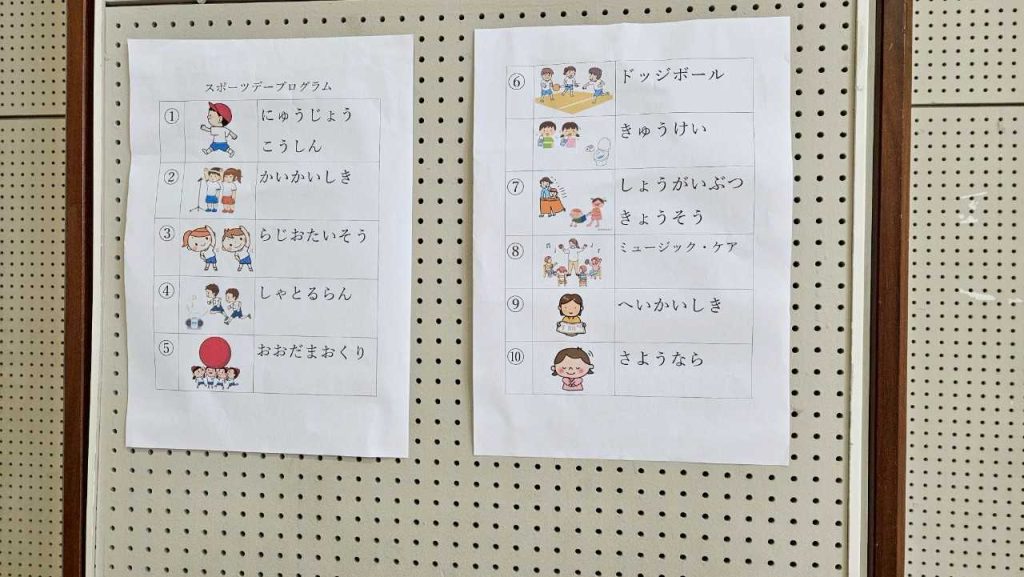 スポーツデープログラム
① にゅうじょう
こうしん
② かいかいしき
③ らじおたいそう
④ しゃとるらん
⑤ おおだまおくり
⑥ ドッジボール
きゅうけい
⑦ しょうがいぶつ
きょうそう
⑧ ミュージック・ケア
⑨ へいかいしき
⑩ さようなら